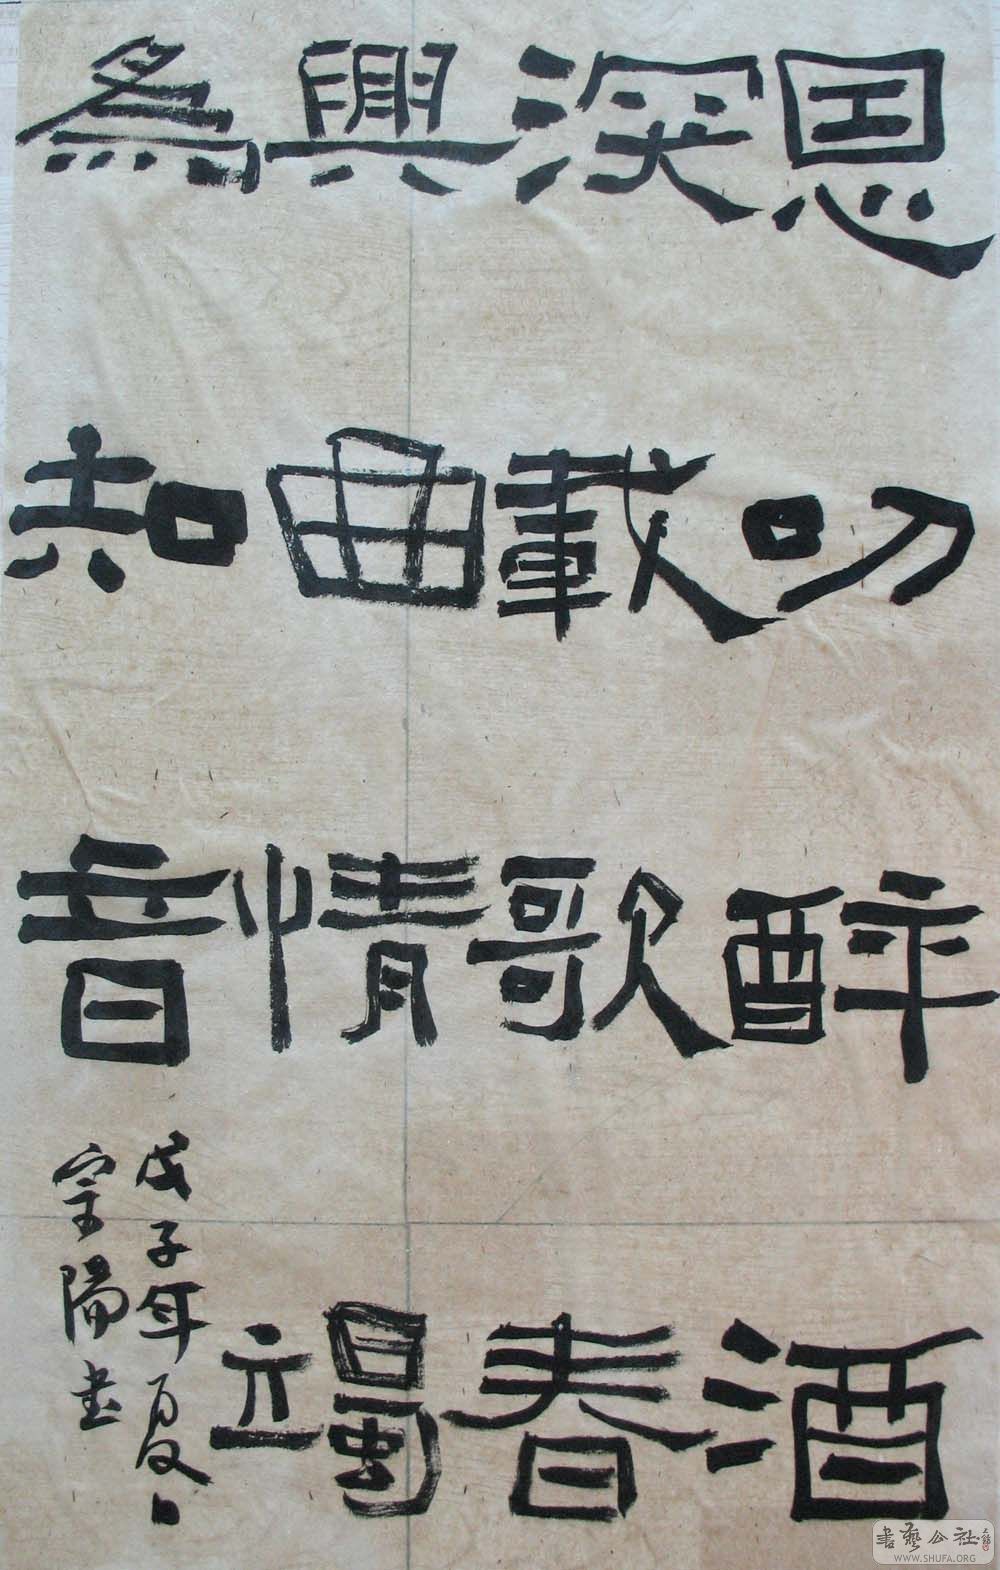 恩叨醉酒
深載歌春
興曲情竭
為知音
戊子年夏日
陽書
書藝公社
WWW.SHUFA.ORG